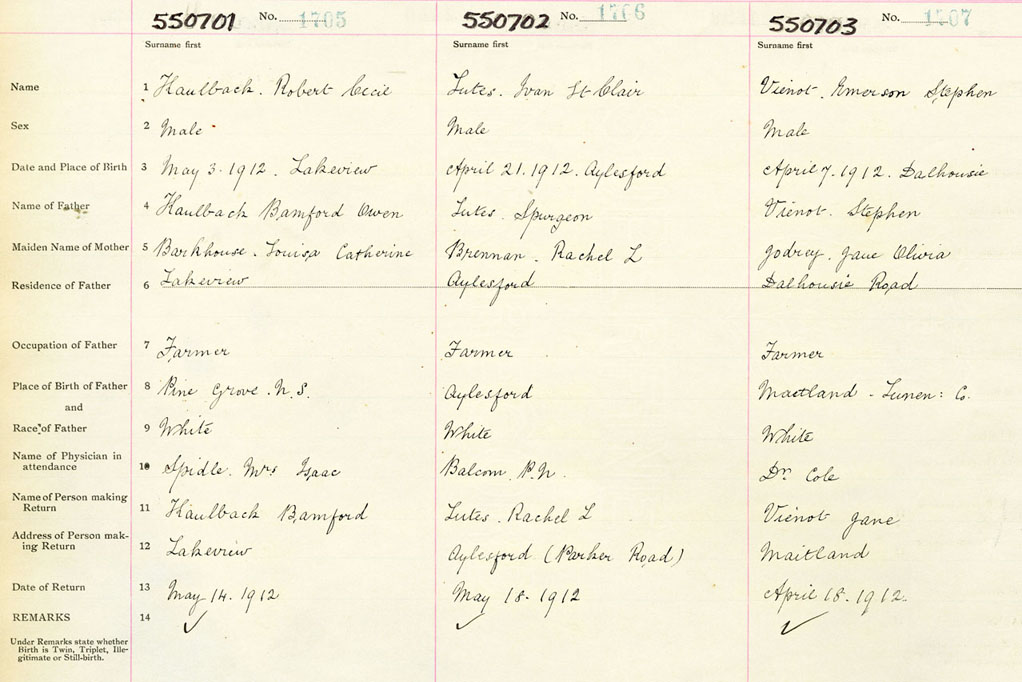 550701 No. 1705 550702 No. 1706 550703 No. 1707
Surname first Surname first Surname first
Name 1 Haulback. Robert Cecil Lutes. Ivan St Clair Vienot. Emerson Stephen
Sex 2 Male Male Male
Date and Place of Birth 3 May 3. 1912. Lakeview April 21. 1912. Aylesford April 7. 1912. Dalhousie
Name of Father 4 Haulback Bamford Owen Lutes. Spurgeon Vienot. Stephen
Maiden Name of Mother 5 Barkhouse. Louisa Catherine Brennan. Rachel L Godrey. Jane Olivia
Residence of Father 6 Lakeview Aylesford Dalhousie Road
Occupation of Father 7 Farmer Farmer Farmer
Place of Birth of Father 8 Pine Grove. N.S. Aylesford Maetland - Lunen: Co.
and
Race of Father 9 White White White
Name of Physician in
attendance 10 Spidle. Mrs Isaac Balcom. P.N. Dr Cole
Name of Person making
Return 11 Haulback Bamford Lutes. Rachel L Vienot Jane
Address of Person mak-
ing Return 12 Lakeview Aylesford (Parker Road) Maitland
Date of Return 13 May 14. 1912 May 18. 1912 April 18. 1912.
REMARKS 14 ✓ ✓ ✓
Under Remarks state whether
Birth is Twin, Triplet, Ille-
gitimate or Still-birth.